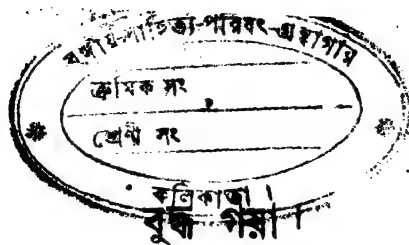 বঙ্গীয়-সাহিত্য-পরিষৎ-গ্রন্থাগার
ক্রমিক সং
শ্রেণী সং
কলিকাতা ।
বুদ্ধ গয়া ।